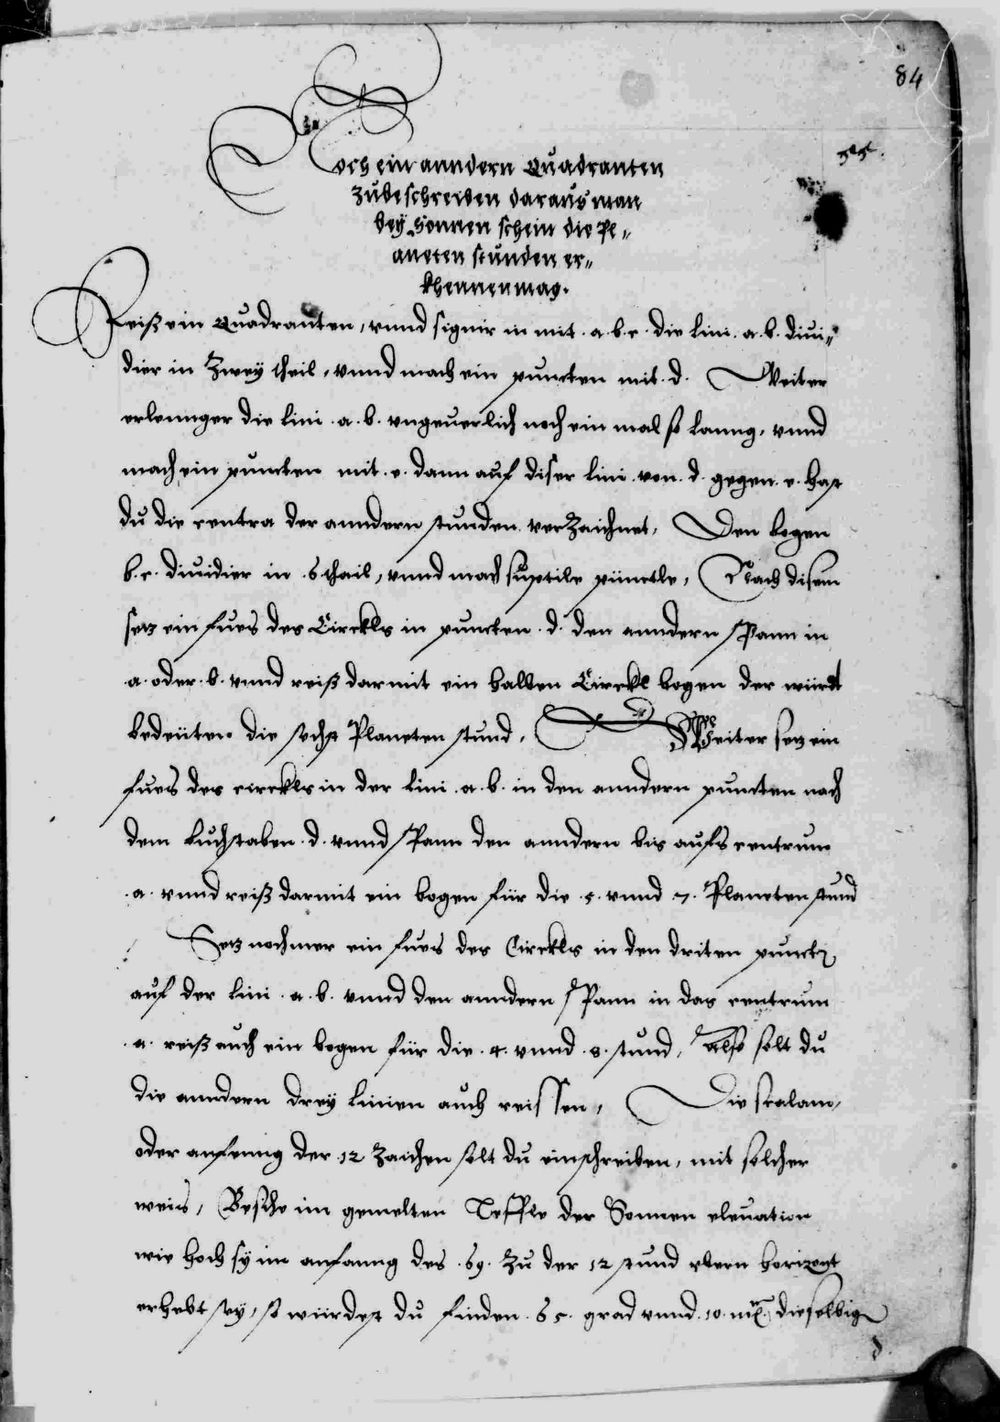 84
Noch ein anndern Quadranten
zubeschreiben daraus man
bey Sonnen schein die Pl-
aneten stunden er-
khennen mag.
Reiß ein Quadranten, vnnd signir in mit .a.b.c. die lini .a.b. diui-
dier in Zwey theil, vnnd mach ein puncten mit .d. Weiter
erlennger die lini .a.b. vngeuerlich noch ein mal so lanng, vnnd
mach ein puncten mit .e. dann auf diser lini von .d. gegen .e. hast
du die centra der anndern stunden verZaichnet, Den bogen
b.c. diuidier in .6 thail, vnnd mach suptile pünctle, Nach disem
setz ein fues des Circkls in puncten .d. den anndern Spann in
.a. oder .b. vnnd reiß darmit ein halben Circkl bogen der würdt
bedeüten die sechst Planeten stund, Weiter setz ein
fues des circkls in der lini .a.b. in den anndern puncten nach
dem buchstaben .d. vnnd Spann den anndern bis aufs centrum
.a. vnnd reiß darmit ein bogen für die .5. vnnd .7. Planeten stund
Setz nochmer ein fues des Circkls in den driten punckt
auf der lini .a.b. vnnd den anndern Spann in das centrum
.a. reiß auch ein bogen für die .4. vnnd .8. stund, also solt du
die anndern drey linien auch reissen, Die scalam,
oder anfenng der .12 Zaichen solt du einschreiben, mit solcher
weis, Besihe im gemelten Teffle der Sonnen eleuation
wie hoch sy im anfanng des .69. Zu der 12 stund vbern horizont
erhebt sey, so würdest du finden .65. grad vnnd .10. mi. dieselbig